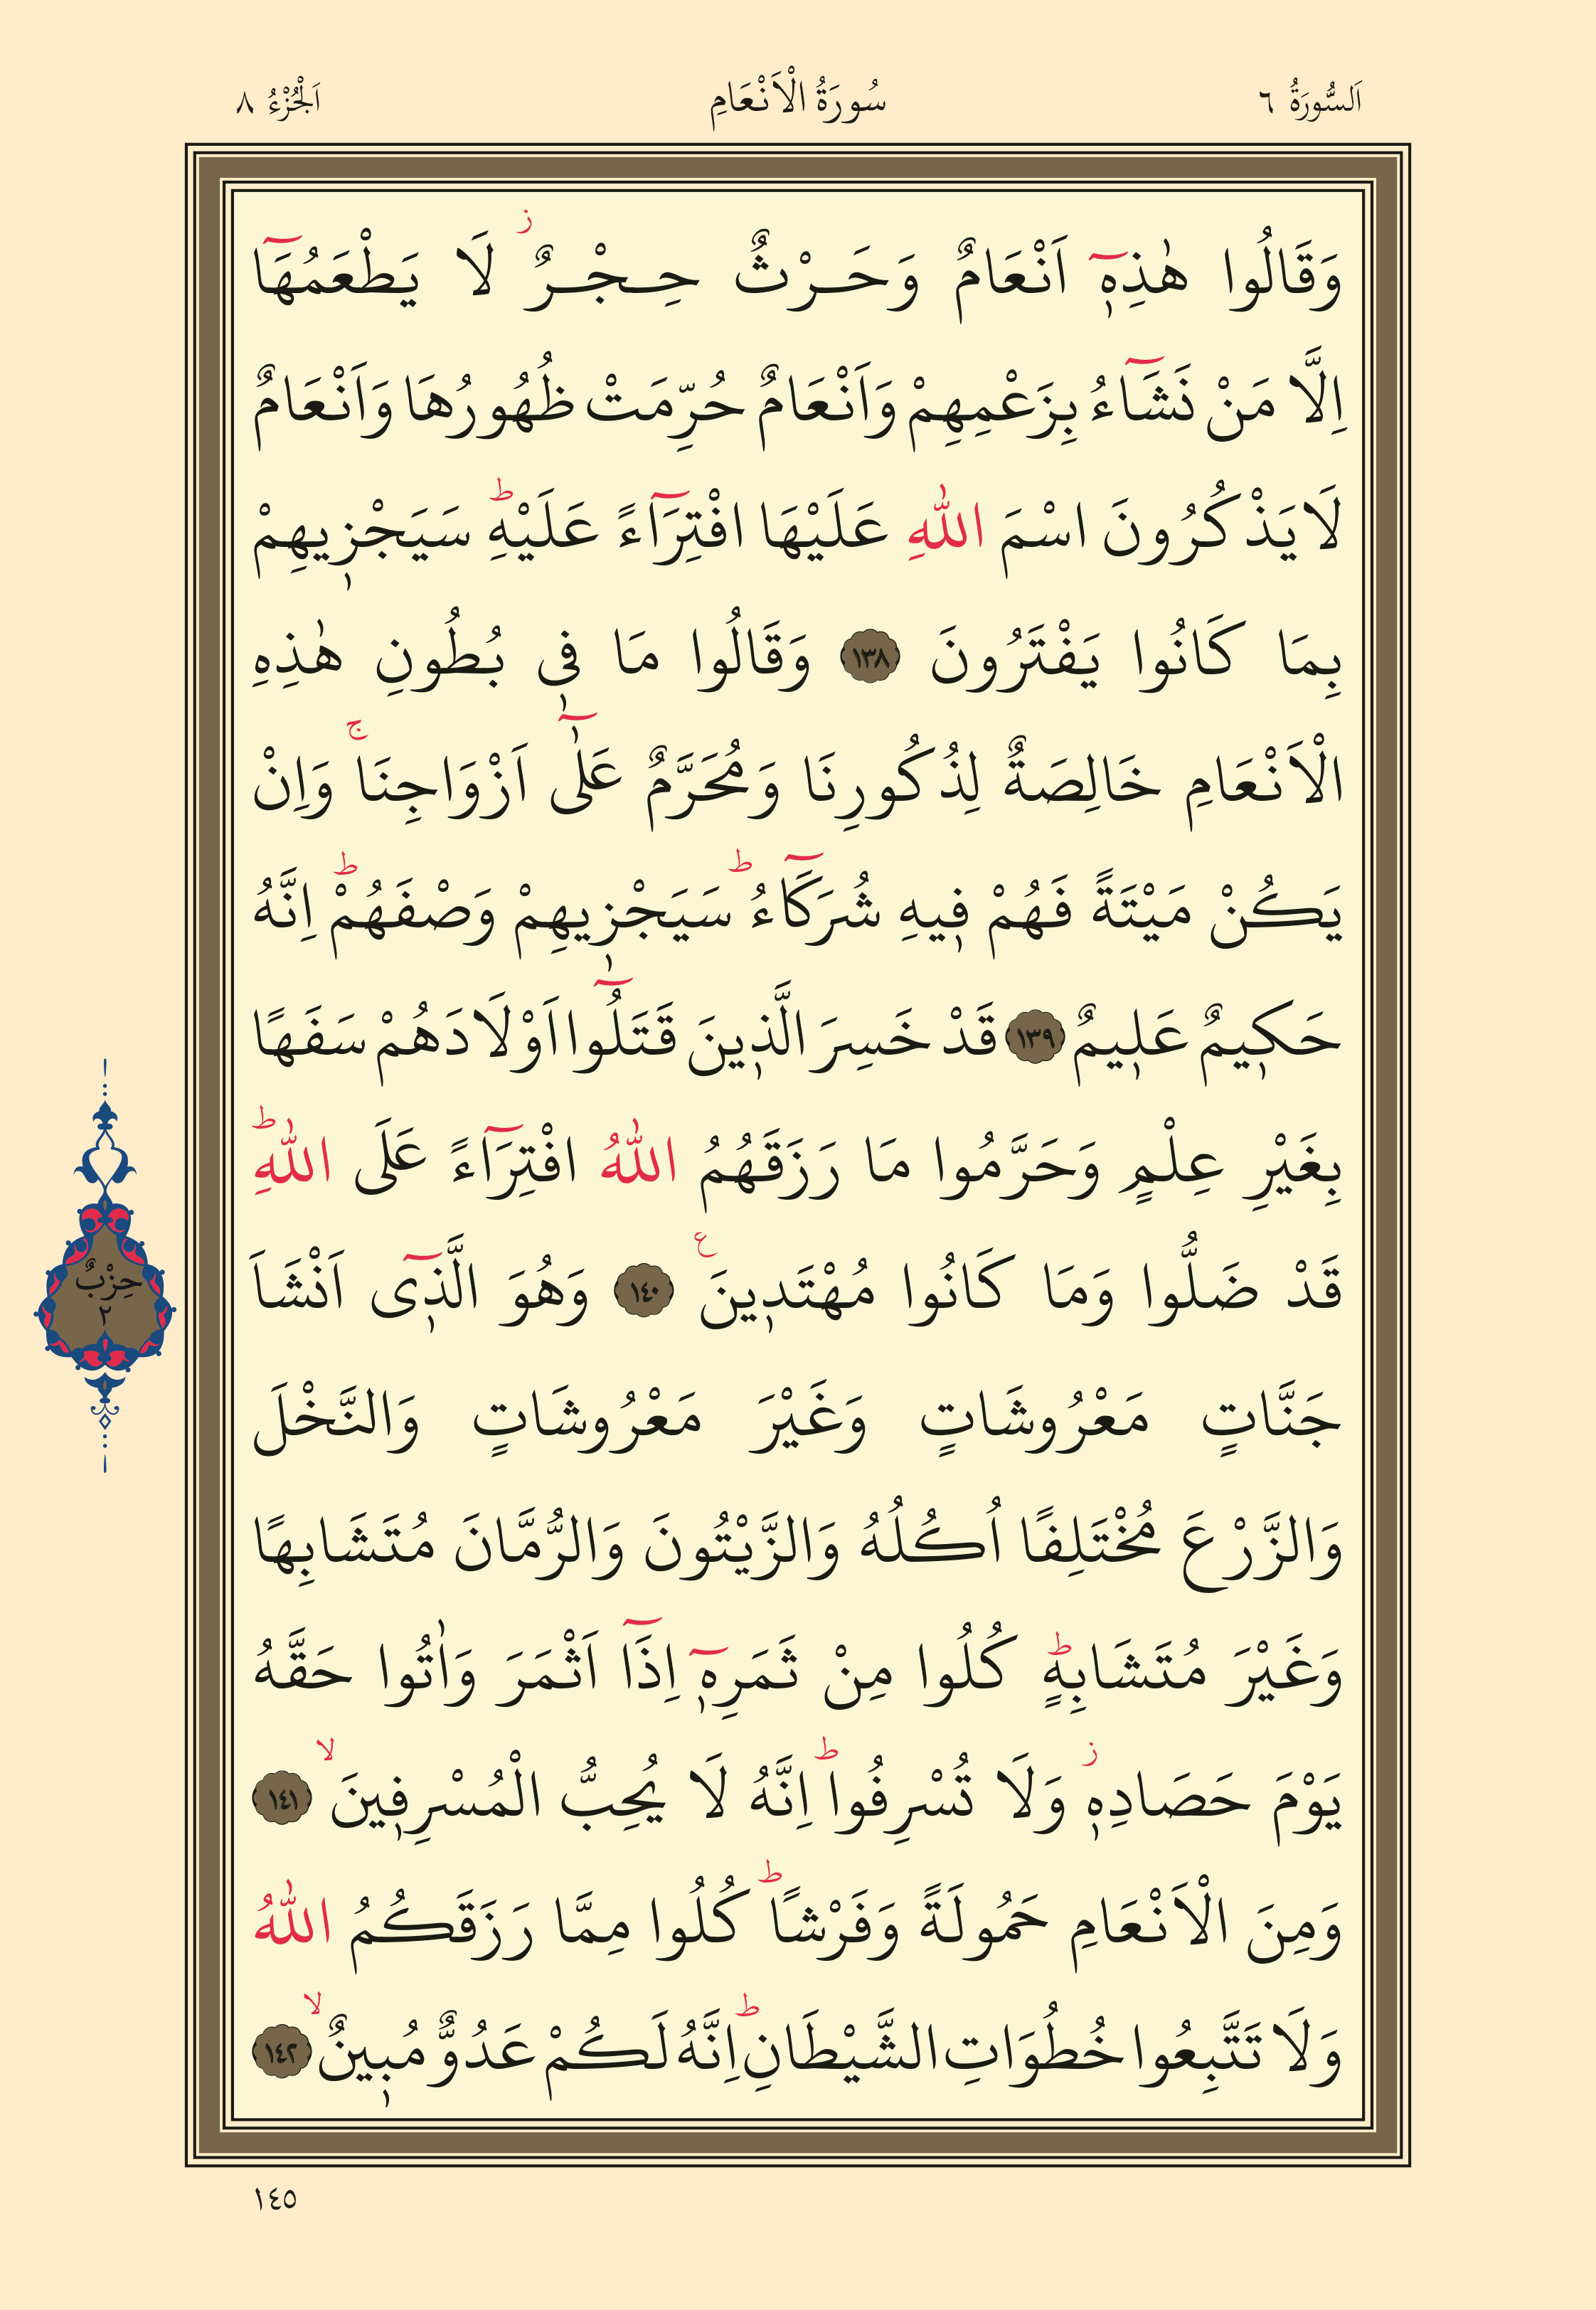 اَلسُّورَةُ ٦ سُورَةُ الْاَنْعَامِ اَلْجُزْءُ ٨
وَقَالُوا هٰذِه۪ٓ اَنْعَامٌ وَحَرْثٌ حِجْرٌۘ لَا يَطْعَمُهَٓا
اِلَّا مَنْ نَشَٓاءُ بِزَعْمِهِمْ وَاَنْعَامٌ حُرِّمَتْ ظُهُورُهَا وَاَنْعَامٌ
لَا يَذْكُرُونَ اسْمَ اللّٰهِ عَلَيْهَا افْتِرَٓاءً عَلَيْهِۜ سَيَجْز۪يهِمْ
بِمَا كَانُوا يَفْتَرُونَ ﴿١٣٨﴾ وَقَالُوا مَا ف۪ى بُطُونِ هٰذِهِ
الْاَنْعَامِ خَالِصَةٌ لِذُكُورِنَا وَمُحَرَّمٌ عَلٰٓى اَزْوَاجِنَاۚ وَاِنْ
يَكُنْ مَيْتَةً فَهُمْ ف۪يهِ شُرَكَٓاءُۜ سَيَجْز۪يهِمْ وَصْفَهُمْۜ اِنَّهُ
حَك۪يمٌ عَل۪يمٌ ﴿١٣٩﴾ قَدْ خَسِرَ الَّذ۪ينَ قَتَلُٓوا اَوْلَادَهُمْ سَفَهًا
بِغَيْرِ عِلْمٍ وَحَرَّمُوا مَا رَزَقَهُمُ اللّٰهُ افْتِرَٓاءً عَلَى اللّٰهِۜ
قَدْ ضَلُّوا وَمَا كَانُوا مُهْتَد۪ينَ ع ﴿١٤٠﴾ وَهُوَ الَّذ۪ٓى اَنْشَاَ
حِزْبٌ
٢
جَنَّاتٍ مَعْرُوشَاتٍ وَغَيْرَ مَعْرُوشَاتٍ وَالنَّخْلَ
وَالزَّرْعَ مُخْتَلِفًا اُكُلُهُ وَالزَّيْتُونَ وَالرُّمَّانَ مُتَشَابِهًا
وَغَيْرَ مُتَشَابِهٍۜ كُلُوا مِنْ ثَمَرِه۪ٓ اِذَٓا اَثْمَرَ وَاٰتُوا حَقَّهُ
يَوْمَ حَصَادِه۪ۘ وَلَا تُسْرِفُواۜ اِنَّهُ لَا يُحِبُّ الْمُسْرِف۪ينَۙ ﴿١٤١﴾
وَمِنَ الْاَنْعَامِ حَمُولَةً وَفَرْشًاۜ كُلُوا مِمَّا رَزَقَكُمُ اللّٰهُ
وَلَا تَتَّبِعُوا خُطُوَاتِ الشَّيْطَانِۜ اِنَّهُ لَكُمْ عَدُوٌّ مُب۪ينٌۙ ﴿١٤٢﴾
١٤٥